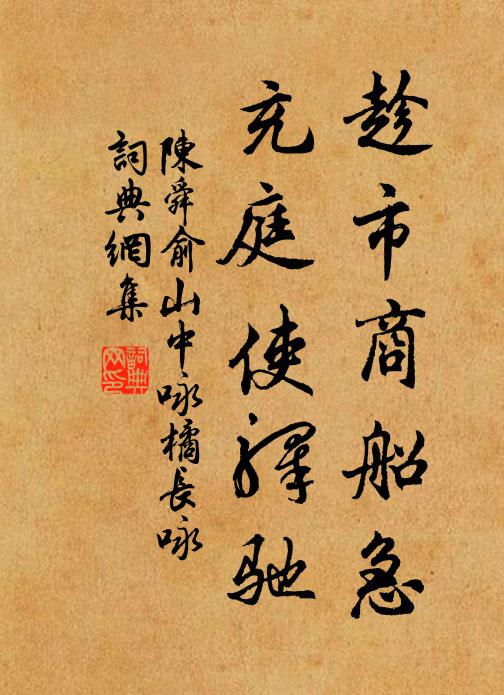 趁市商船急
充庭使驛馳
陳舜俞山中咏橘長咏
詞典網集
詞典
网印